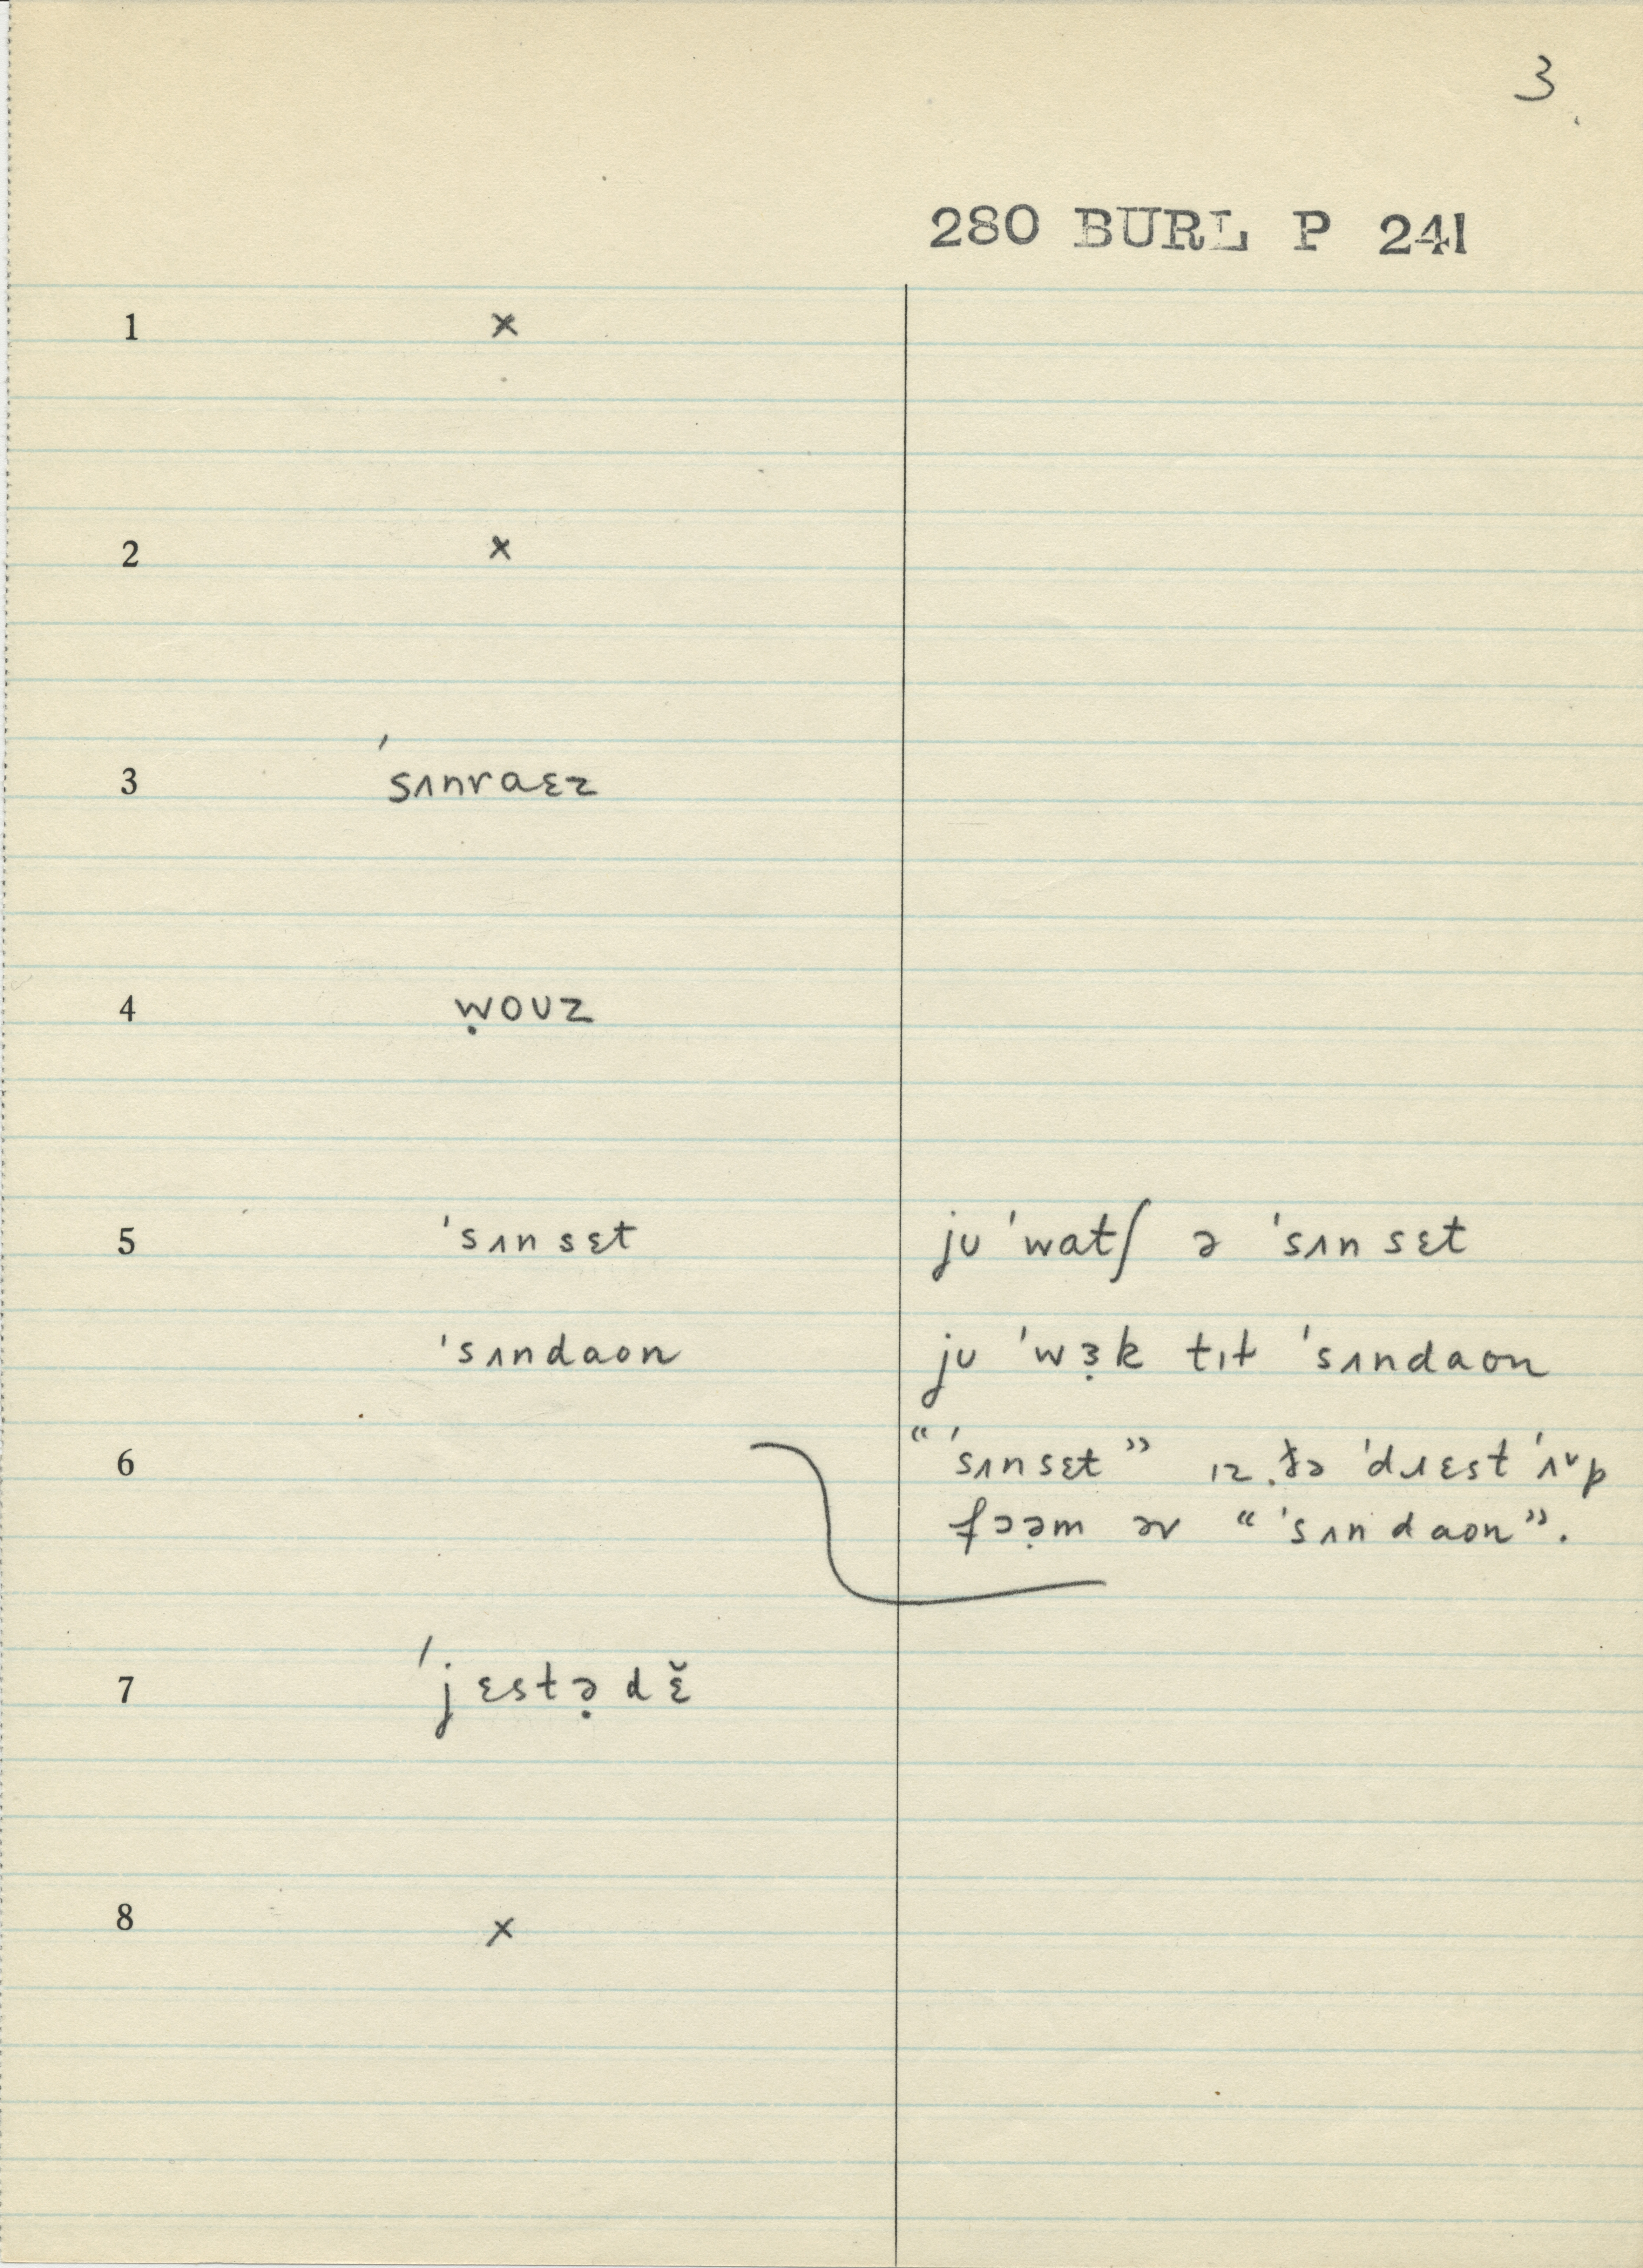 3
280 BURL P 241
1 ×
2 ×
3 ˈsʌnraɛz
4 ẉoʊz
5 ˈsʌnsɛt jʊ ˈwatʃ ə ˈsʌnsɛt
ˈsʌndaʊn jʊ ˈwɜ̣k tɪt ˈsʌndaʊn
6 “ˈsʌnsɛt” ɪz ðə
fɔə̣m əv “ˈsʌndaʊn”.
7 ˈjɛstə̣dɛ̆
8 ×